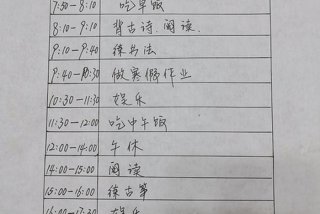 7:50-8:10 吃早饭
8:10-9:10 背古诗、阅读、
9:10-9:40 练书法
9:40-10:30 做寒假作业
10:30-11:30 娱乐
11:30-12:00 吃中午饭
12:00-14:00 午休
14:00-15:00 阅读
15:00-16:00 练古筝
16:00-17:30 娱乐